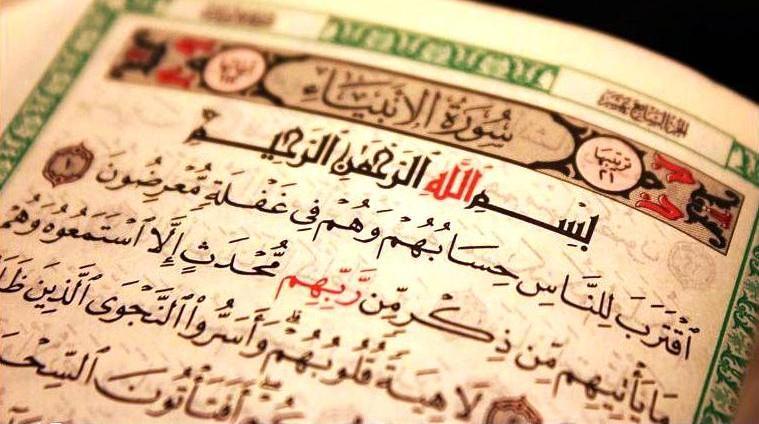 الجزء السابع عشر
سُورَةُ الأَنْبِيَاءِ
ترتيبها
٢١
بِسْمِ اللَّهِ الرَّحْمَٰنِ الرَّحِيمِ
ٱقْتَرَبَ لِلنَّاسِ حِسَابُهُمْ وَهُمْ فِى غَفْلَةٍ مُّعْرِضُونَ ١
مَا يَأْتِيهِم مِّن ذِكْرٍ مِّن رَّبِّهِم مُّحْدَثٍ إِلَّا ٱسْتَمَعُوهُ وَهُمْ
لَاهِيَةً قُلُوبُهُمْ ۗ وَأَسَرُّوا۟ ٱلنَّجْوَى ٱلَّذِينَ
أَفَتَأْتُونَ